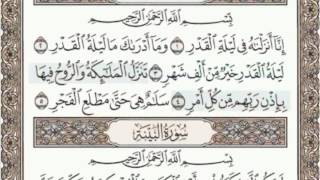 بِسْمِ ٱللَّهِ ٱلرَّحْمَٰنِ ٱلرَّحِيمِ
إِنَّآ أَنزَلْنَٰهُ فِى لَيْلَةِ ٱلْقَدْرِ ١ وَمَآ أَدْرَىٰكَ مَا لَيْلَةُ ٱلْقَدْرِ ٢
لَيْلَةُ ٱلْقَدْرِ خَيْرٌ مِّنْ أَلْفِ شَهْرٍ ٣ تَنَزَّلُ ٱلْمَلَٰٓئِكَةُ وَٱلرُّوحُ فِيهَا
بِإِذْنِ رَبِّهِم مِّن كُلِّ أَمْرٍ ٤ سَلَٰمٌ هِىَ حَتَّىٰ مَطْلَعِ ٱلْفَجْرِ ٥
سُورَةُ ٱلْبَيِّنَةِ
بِسْمِ ٱللَّهِ ٱلرَّحْمَٰنِ ٱلرَّحِيمِ